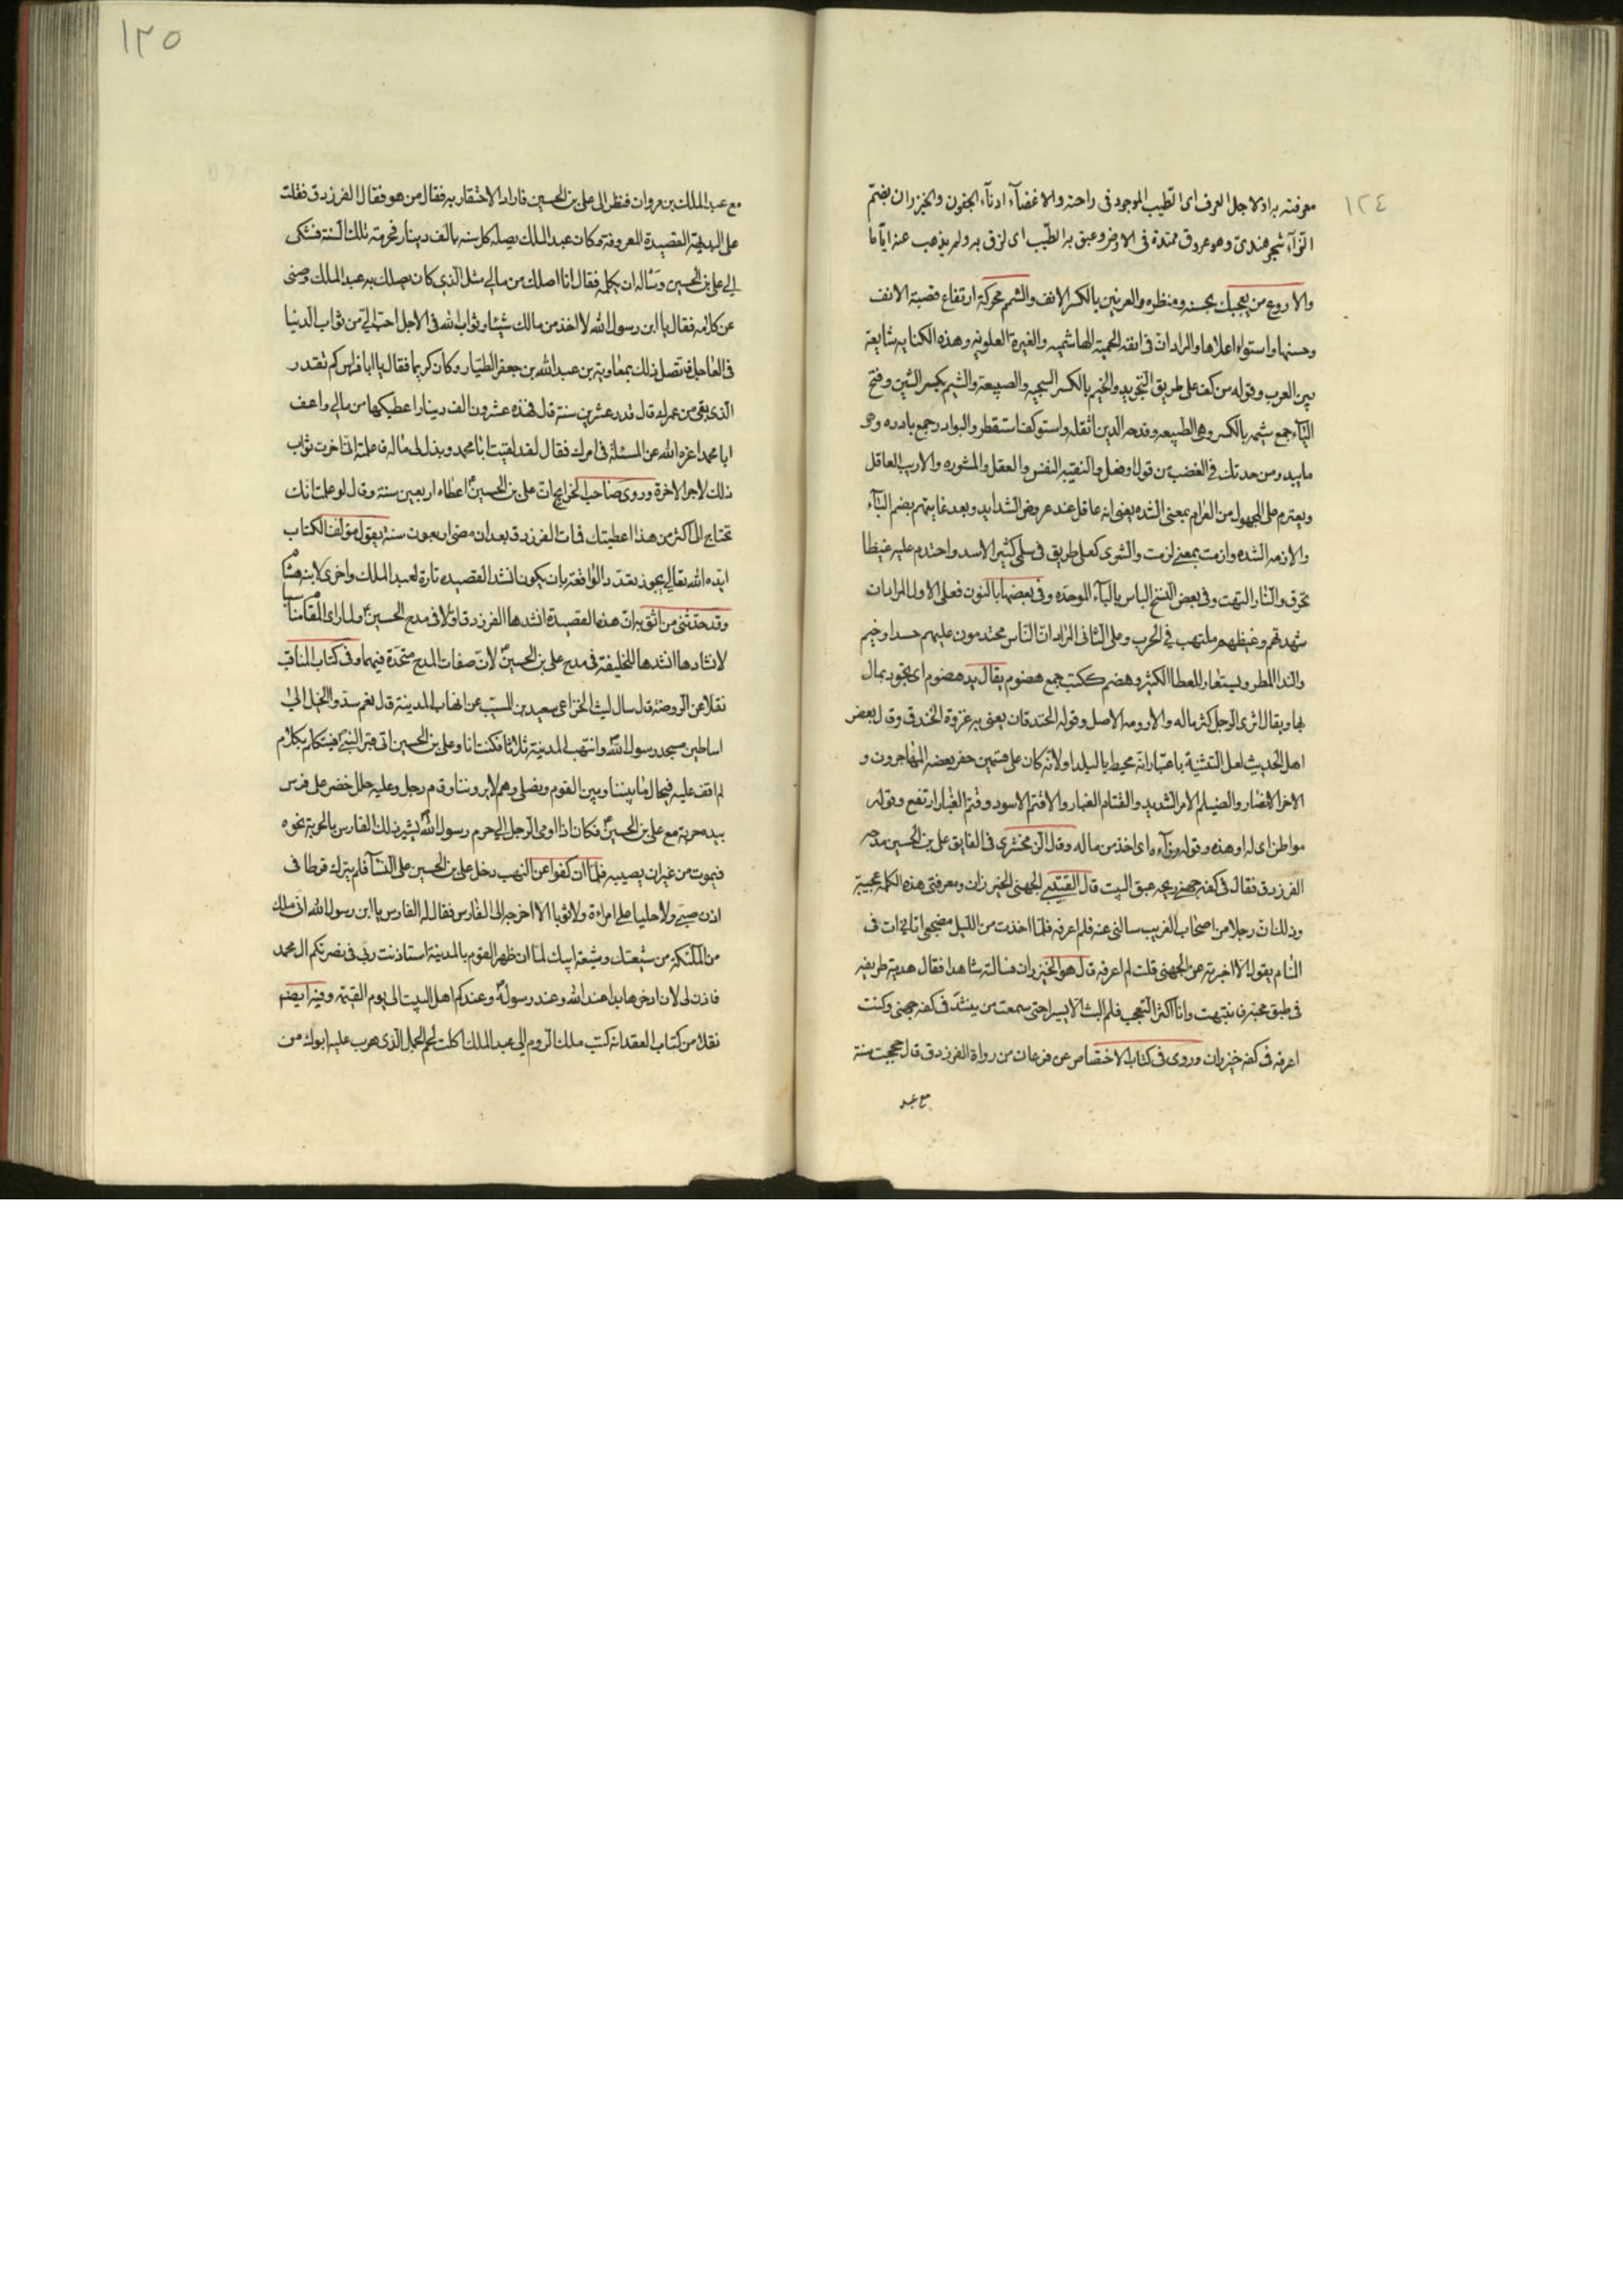 ١٢٤
معرفته به او لاجل العرف اى الطيب الموجود فى راحته والاغضآء ادنآء الجفون والخيزران بضمّ
الزآء شجر هندىّ وهو عروق ممتدة فى الارض وعبق به الطّيب اى لزق به ولم يذهب عنه ايّاما
والاروع من يعجبك بحسنه ومنظره والعرنين بالكسر الانف والشمم محركة ارتفاع قصبة الانف
وحسنها واستواء اعلاها والمراد انّ فى انفه الحمية الهاشميه والغيرة العلويه وهذه الكنايه شايعة
بين العرب وقوله من كفه على طريق التجريد والخيم بالكسر السجيه والصبيعة والشيم بكسر الشين وفتح
اليآء جمع شيمه بالكسر وهى الطبيعه وفدحه الدين اثقله واستوكف استقطر والبوادر جمع بادره وهو
ما يبدر من حدتك فى الغضب من قول او فعل والنقيبه النفس والعقل والمشوره والاريب العاقل
ويعترم على المجهول من العرام بمعنى الشده يعنى انه عاقل عند عروض الشدايد وبعد غايتهم بضم البآء
والازمه الشده وازمت بمعنى لزمت والشرى كعلى طريق فى سلمى كثير الاسد واحتدم عليه غيظا
تحرق والنار التهبت وفى بعض النسخ الباس بالبآء الموحده وفى بعضها بالنون فعلى الاول المراد ان
شهدتهم وغيظهم ملتهب فى الحرب وعلى الثانى المراد ان الناس محتدمون عليهم حسدا وخيم
والندا المطر ويستعار للعطا الكثير وهضم ككتب جمع هضوم يقال يد هضوم اى تجود بمال
بها ويقال اثرى الرجل كثر ماله والارومه الاصل وقوله الخندقان يعنى به غزوة الخندق وقال بعض
اهل الحديث لعل التثنية باعتبار انه محيط بالبلد او لانّه كان على قسمين حفر بعضه المهاجرون و
الاخر الانصار والصيلم الامر الشديد والقتام الغبار والاقتم الاسود وقتم الغبار ارتفع وقوله
مواطن اى له او هذه وقوله رزآءه اى اخذ من ماله وقال الزمخشرى فى الفايق على بن الحسين مدحه
الفرزدق فقال فى كفه جهنى ريحه عبق البيت قال القتيبى الجهنى الخيزران ومعرفتى هذه الكلمة عجيبة
وذلك انّ رجلا من اصحاب الغريب سالنى عنه فلم اعرفه فلمّا اخذت من الليل مضجعى اتانى ات فى
المنام يقول الا اخبرته عن الجهنى قلت لم اعرفه قال هو الخيزران فسالته شاهدا فقال هدية طريفه
فى طبق مجنه فانتبهت وانا اكثر التعجب فلم البث الا يسيرا حتى سمعت من ينشد فى كفه جهنى وكنت
اعرفه فى كفه خيزران وروى فى كتاب الاختصاص عن فرعان من رواة الفرزدق قال حججت سنة
مع عبد
١٢٥
مع عبد الملك بن مروان فنظر الى على بن الحسين فاراد الاحتقار به فقال من هو فقال الفرزدق فقلت
على البديهة القصيدة المعروفة وكان عبد الملك يصله كل سنه بالف دينار فحرمته تلك السنة فشكى
الى على بن الحسين وسأله ان يكلمه فقال انا اصلك من مالى مثل الذى كان يصلك به عبد الملك وصنى
عن كلامه فقال يا ابن رسول الله لا اخذ من مالك شيئا وثواب الله فى الاجل احبّ الىّ من ثواب الدنيا
فى العاجل فاتصل ذلك بمعاوية بن عبد الله بن جعفر الطيّار وكان كريما فقال يا ابا فراس كم تقدر
الذى بقى من عمرك قال قدر عشرين سنة قال فهذه عشرون الف دينار اعطيكها من مالى واعف
ابا محمد اعزه الله عن المسئلة فى امرك فقال لقد لقيت ابا محمد وبذل لى ماله فاعلمته انّى اخرت ثواب
ذلك لاجر الاخرة وروى صاحب الخرايج ان على بن الحسين اعطاه اربعين سنة وقال لو علمت انك
تحتاج الى اكثر من هذا اعطيتك فمات الفرزدق بعد ان مضى اربعون سنة يقول مؤلف الكتاب
ايّده الله تعالى يجوز تعدّد الواقعة بان يكون انشد القصيده تارة لعبد الملك واخرى لابنه هشام
وقد حدّثنى من اثق به ان هذه القصيدة انشدها الفرزدق اوّلا فى مدح الحسين ولما راى المقام مناسبا
لانشادها انشدها للخليفة فى مدح على بن الحسين لانّ صفات المدح متحدة فيهما وفى كتاب المناقب
نقلا عن الروضة قال سال ليث الخزاعى سعيد بن المسيّب عن انهاب المدينة قال نعم شدوا الخيل الى
اساطين مسجد رسول الله وانتهب المدينة ثلاثا فكنت انا وعلى بن الحسين اتى قبر النبى فيتكلم بكلام
لم اقف عليه فيحال ما بيننا وبين القوم ونصلى وهم لا يروننا وقام رجل وعليه حلل خضر على فرس
بيده حربة مع على بن الحسين فكان اذا اومى الرجل الى حرم رسول الله يشير ذلك الفارس بالحربة نحوه
فيموت من غير ان يصيبه فلما ان كفوا عن النهب دخل على بن الحسين على النسآ فلم يترك قرطا فى
اذن صبى ولا حليا على امراءة ولا ثوبا الا اخرجه الى الفارس فقال له الفارس يا ابن رسول الله انى ملك
من الملئكة من شيعتك وشيعة ابيك لما ان ظهر القوم بالمدينة استاذنت ربى فى نصرتكم ال محمد
فاذن لى لان ادخرها يدا عند الله وعند رسوله وعندكم اهل البيت الى يوم القيمة وفيه ايضا
نقلا من كتاب العقد انه كتب ملك الروم الى عبد الملك اكلت لحم الجمل الذى هرب عليه ابوك من